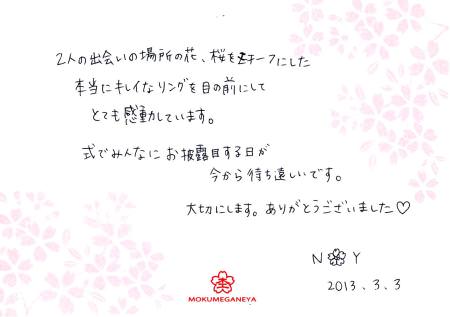 2人の出会いの場所の花、桜をモチーフにした
本当にキレイなリングを目の前にして
とても感動しています。
式でみんなにお披露目する日が
今から待ち遠しいです。
大切にします。ありがとうございました♡
N🌸Y
2013.3.3
MOKUMEGANEYA